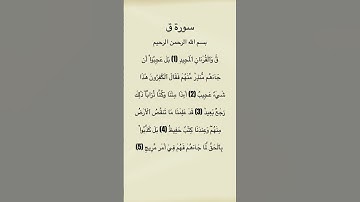 سورة ق
بسم الله الرحمن الرحيم
قٓ وَالْقُرْءَانِ الْمَجِيدِ (1) بَلْ عَجِبُوٓا۟ أَن
جَآءَهُم مُّنذِرٌ مِّنْهُمْ فَقَالَ الْكَٰفِرُونَ هَٰذَا
شَىْءٌ عَجِيبٌ (2) أَءِذَا مِتْنَا وَكُنَّا تُرَابًا ذَٰلِكَ
رَجْعٌۢ بَعِيدٌ (3) قَدْ عَلِمْنَا مَا تَنقُصُ الْأَرْضُ
مِنْهُمْ وَعِندَنَا كِتَٰبٌ حَفِيظٌۢ (4) بَلْ كَذَّبُوا۟
بِالْحَقِّ لَمَّا جَآءَهُمْ فَهُمْ فِىٓ أَمْرٍ مَّرِيجٍ (5)